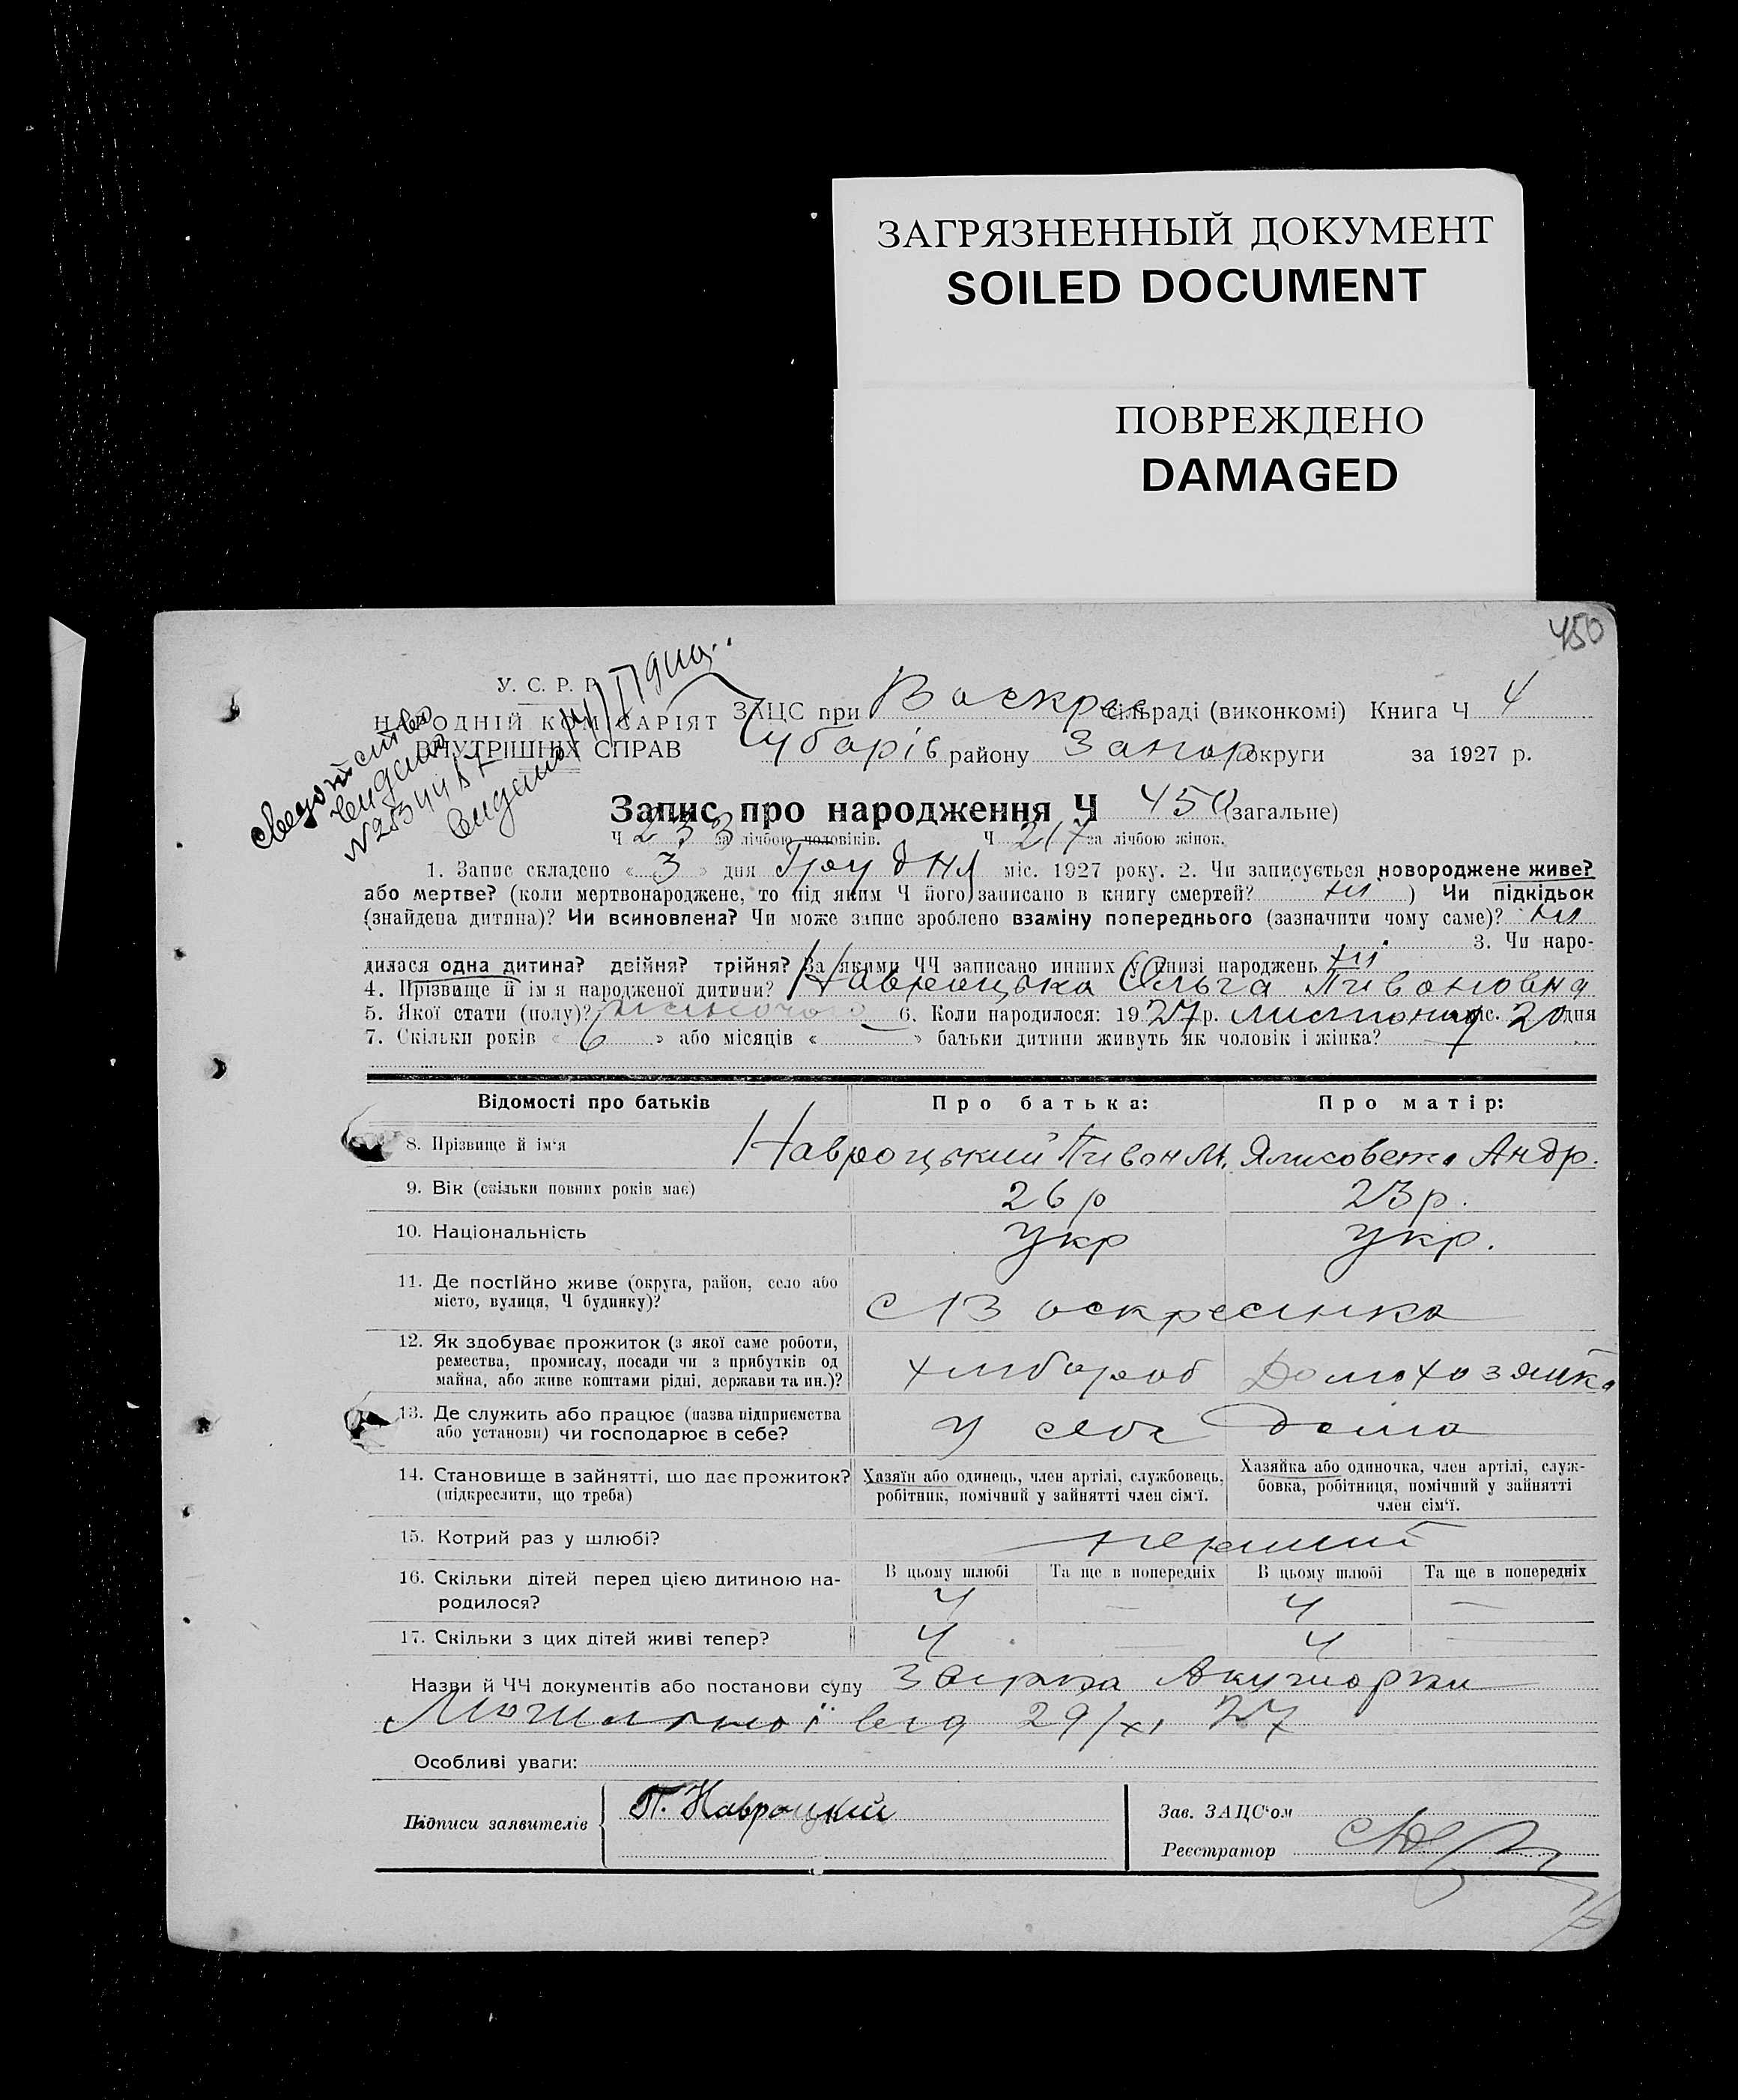 ЗАГРЯЗНЕННЫЙ ДОКУМЕНТ
SOILED DOCUMENT
ПОВРЕЖДЕНО
DAMAGED
450
У. С. Р. Р.
НАРОДНІЙ КОМІСАРІЯТ
ВНУТРІШНІХ СПРАВ
ЗАЦС при Воскрес сільраді (виконкомі) Книга Ч 4
Чубарів району Запор округи за 1927 р.
Запис про народження Ч 450 (загальне)
Ч 233 за лічбою чоловіків. Ч 217 за лічбою жінок.
1. Запис складено « 3 » дня Грудня міс. 1927 року. 2. Чи записується новороджене живе?
або мертве? (коли мертвонароджене, то під яким Ч його записано в книгу смертей? ні ) Чи підкідьок
(знайдена дитина)? Чи всиновлена? Чи може запис зроблено взаміну попереднього (зазначити чому саме)? ні
3. Чи наро-
дилася одна дитина? двійня? трійня? За якими ЧЧ записано инших у книзі народжень ні
4. Прізвище й ім я народженої дитини? Навроцька Ольга Пивоновна
5. Якої стати (полу)? жіночого 6. Коли народилося: 1927 р. листопада міс. 20 дня
7. Скільки років « 6 » або місяців « » батьки дитини живуть як чоловік і жінка?
Відомості про батьків Про батька: Про матір:
8. Прізвище й ім'я Навроцький Пивон М. Ялисовета Андр.
9. Вік (скільки повних років має) 26 р 23 р.
10. Національність Укр Укр.
11. Де постійно живе (округа, район, село або
місто, вулиця, Ч будинку)? с Воскресинка
12. Як здобуває прожиток (з якої саме роботи,
ремества, промислу, посади чи з прибутків од
майна, або живе коштами рідні, держави та ин.)? хлибороб Домохозяйка
13. Де служить або працює (назва підприємства
або установи) чи господарює в себе? У себе дома
14. Становище в зайнятті, що дає прожиток?
(підкреслити, що треба)
Хазяїн або одинець, член артілі, службовець,
робітник, помічний у зайнятті член сім'ї.
Хазяйка або одиночка, член артілі, служ-
бовка, робітниця, помічний у зайнятті
член сім'ї.
15. Котрий раз у шлюбі? перший
16. Скільки дітей перед цією дитиною на-
родилося?
В цьому шлюбі Та ще в попередніх В цьому шлюбі Та ще в попередніх
4 — 4 —
17. Скільки з цих дітей живі тепер? 4 — 4 —
Назви й ЧЧ документів або постанови суду Акушорки
від 29/XI 27
Особливі уваги:
Підписи заявителів П. Навроцкий
Зав. ЗАЦС'ом
Реєстратор